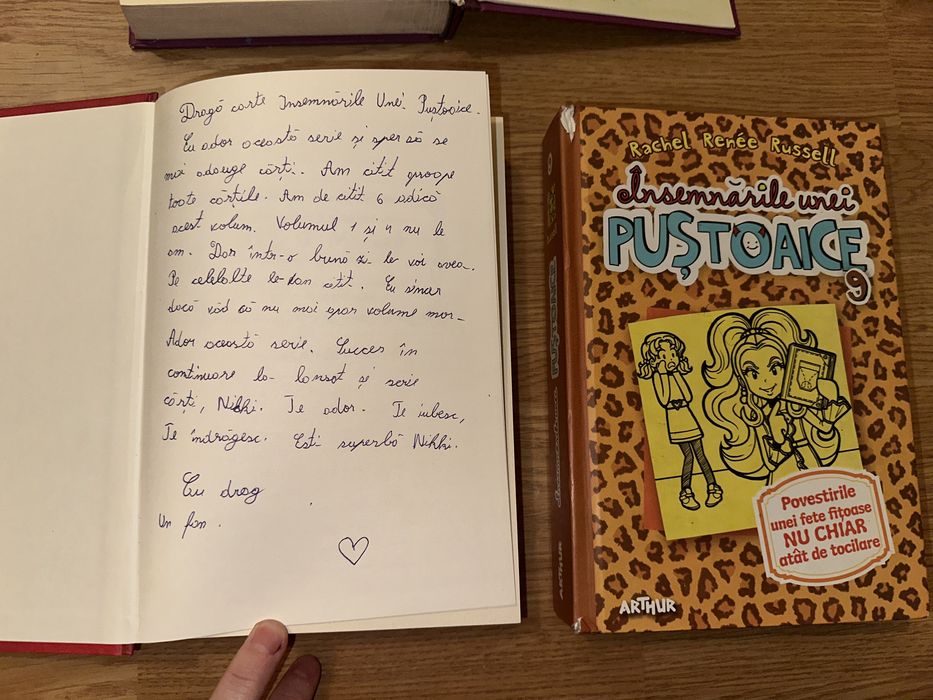 Dragă carte Însemnările Unei Puștoaice.
Eu ador această serie și sper să se
mai adauge cărți. Am citit aproape
toate cărțile. Am de citit 6 adică
acest volum. Volumul 1 și 4 nu le
am. Dar într-o bună zi le voi avea.
Pe celelalte le-am citit. Eu sincer
dacă văd că nu mai apar volume mor_
Ador această serie. Succes în
continuare la lansat și scrie
cărți, Nikki. Te ador. Te iubesc,
Te îndrăgesc. Ești superbă Nikki.
Cu drag
Un fan.
Rachel Renée Russell
Însemnările unei
PUȘTOAICE
9
Povestirile
unei fete fițoase
NU CHIAR
atât de tocilare
ARTHUR
PUȘTOAICE
ARTHUR